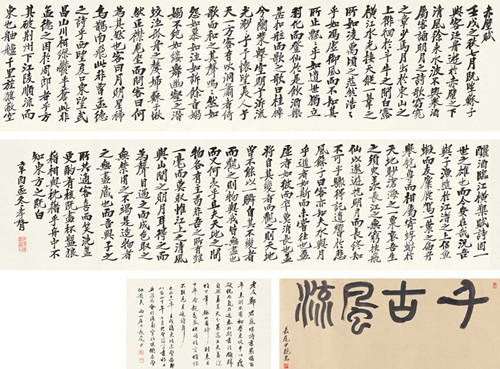 赤壁賦
壬戌之秋七月既望蘇子
與客泛舟遊於赤壁之下
清風徐來水波不興舉酒
屬客誦明月之詩歌窈窕
之章少焉月出於東山之
上徘徊於斗牛之間白露
橫江水光接天縱一葦之
所如凌萬頃之茫然浩浩
乎如馮虛御風而不知其
所止飄飄乎如遺世獨立
羽化而登仙於是飲酒樂
甚扣舷而歌之歌曰桂棹
兮蘭槳擊空明兮泝流
光渺渺兮予懷望美人兮
天一方客有吹洞簫者倚
歌而和之其聲嗚嗚然如
怨如慕如泣如訴餘音嫋
嫋不絕如縷舞幽壑之潛
蛟泣孤舟之嫠婦蘇子愀
然正襟危坐而問客曰何
為其然也客曰月明星稀
烏鵲南飛此非曹孟德
之詩乎西望夏口東望武
昌山川相繆鬱乎蒼蒼此
非孟德之困於周郎者乎方
其破荊州下江陵順流而
東也舳艫千里旌旗蔽空
釃酒臨江橫槊賦詩固一
世之雄也而今安在哉況吾
與子漁樵於江渚之上侶魚
蝦而友麋鹿駕一葉之扁舟
舉匏尊以相屬寄蜉蝣於
天地渺滄海之一粟哀吾生
之須臾羨長江之無窮挾飛
仙以遨遊抱明月而長終知
不可乎驟得託遺響於悲
風蘇子曰客亦知夫水與月
乎逝者如斯而未嘗往也盈
虛者如彼而卒莫消長也蓋
將自其變者而觀之則天地
曾不能以一瞬自其不變者
而觀之則物與我皆無盡也
而又何羨乎且夫天地之間
物各有主苟非吾之所有雖
一毫而莫取惟江上之清風
與山間之明月耳得之而
為聲目遇之而成色取之
無禁用之不竭是造物者之
無盡藏也而吾與子之
所共適客喜而笑洗盞
更酌肴核既盡杯盤狼
藉相與枕藉乎舟中不
知東方之既白
辛酉孟冬
千古風流